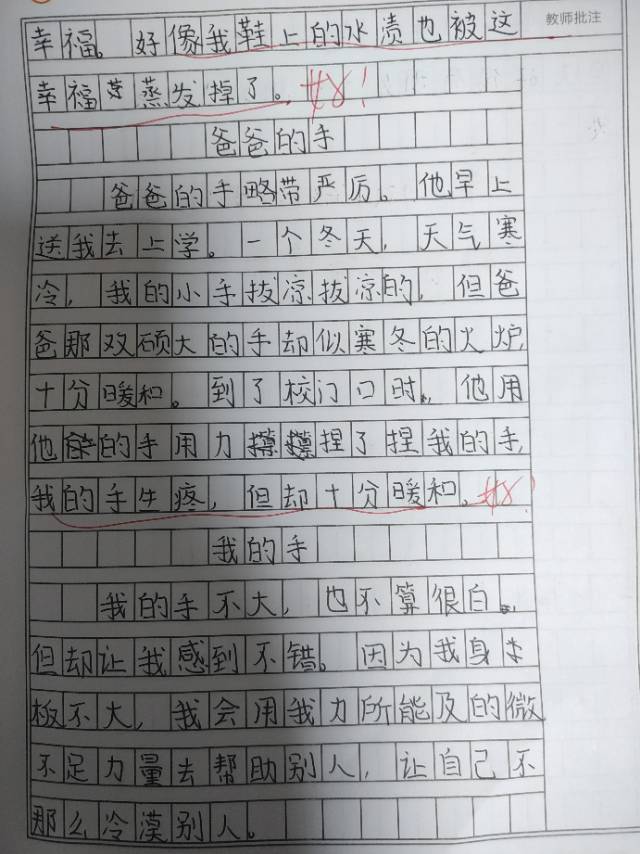 教师批注
幸福。好像我鞋上的水渍也被这
幸福蒸发掉了。好!
爸爸的手
爸爸的手略带严厉。他早上
送我去上学。一个冬天,天气寒
冷,我的小手拔凉拔凉的,但爸
爸那双硕大的手却似寒冬的火炉,
十分暖和。到了校门口时,他用
他的手用力捏了捏我的手,
我的手生疼,但却十分暖和。好!
我的手
我的手不大,也不算很白。
但却让我感到不错。因为我身
板不大,我会用我力所能及的微
不足力量去帮助别人,让自己不
那么冷漠别人。